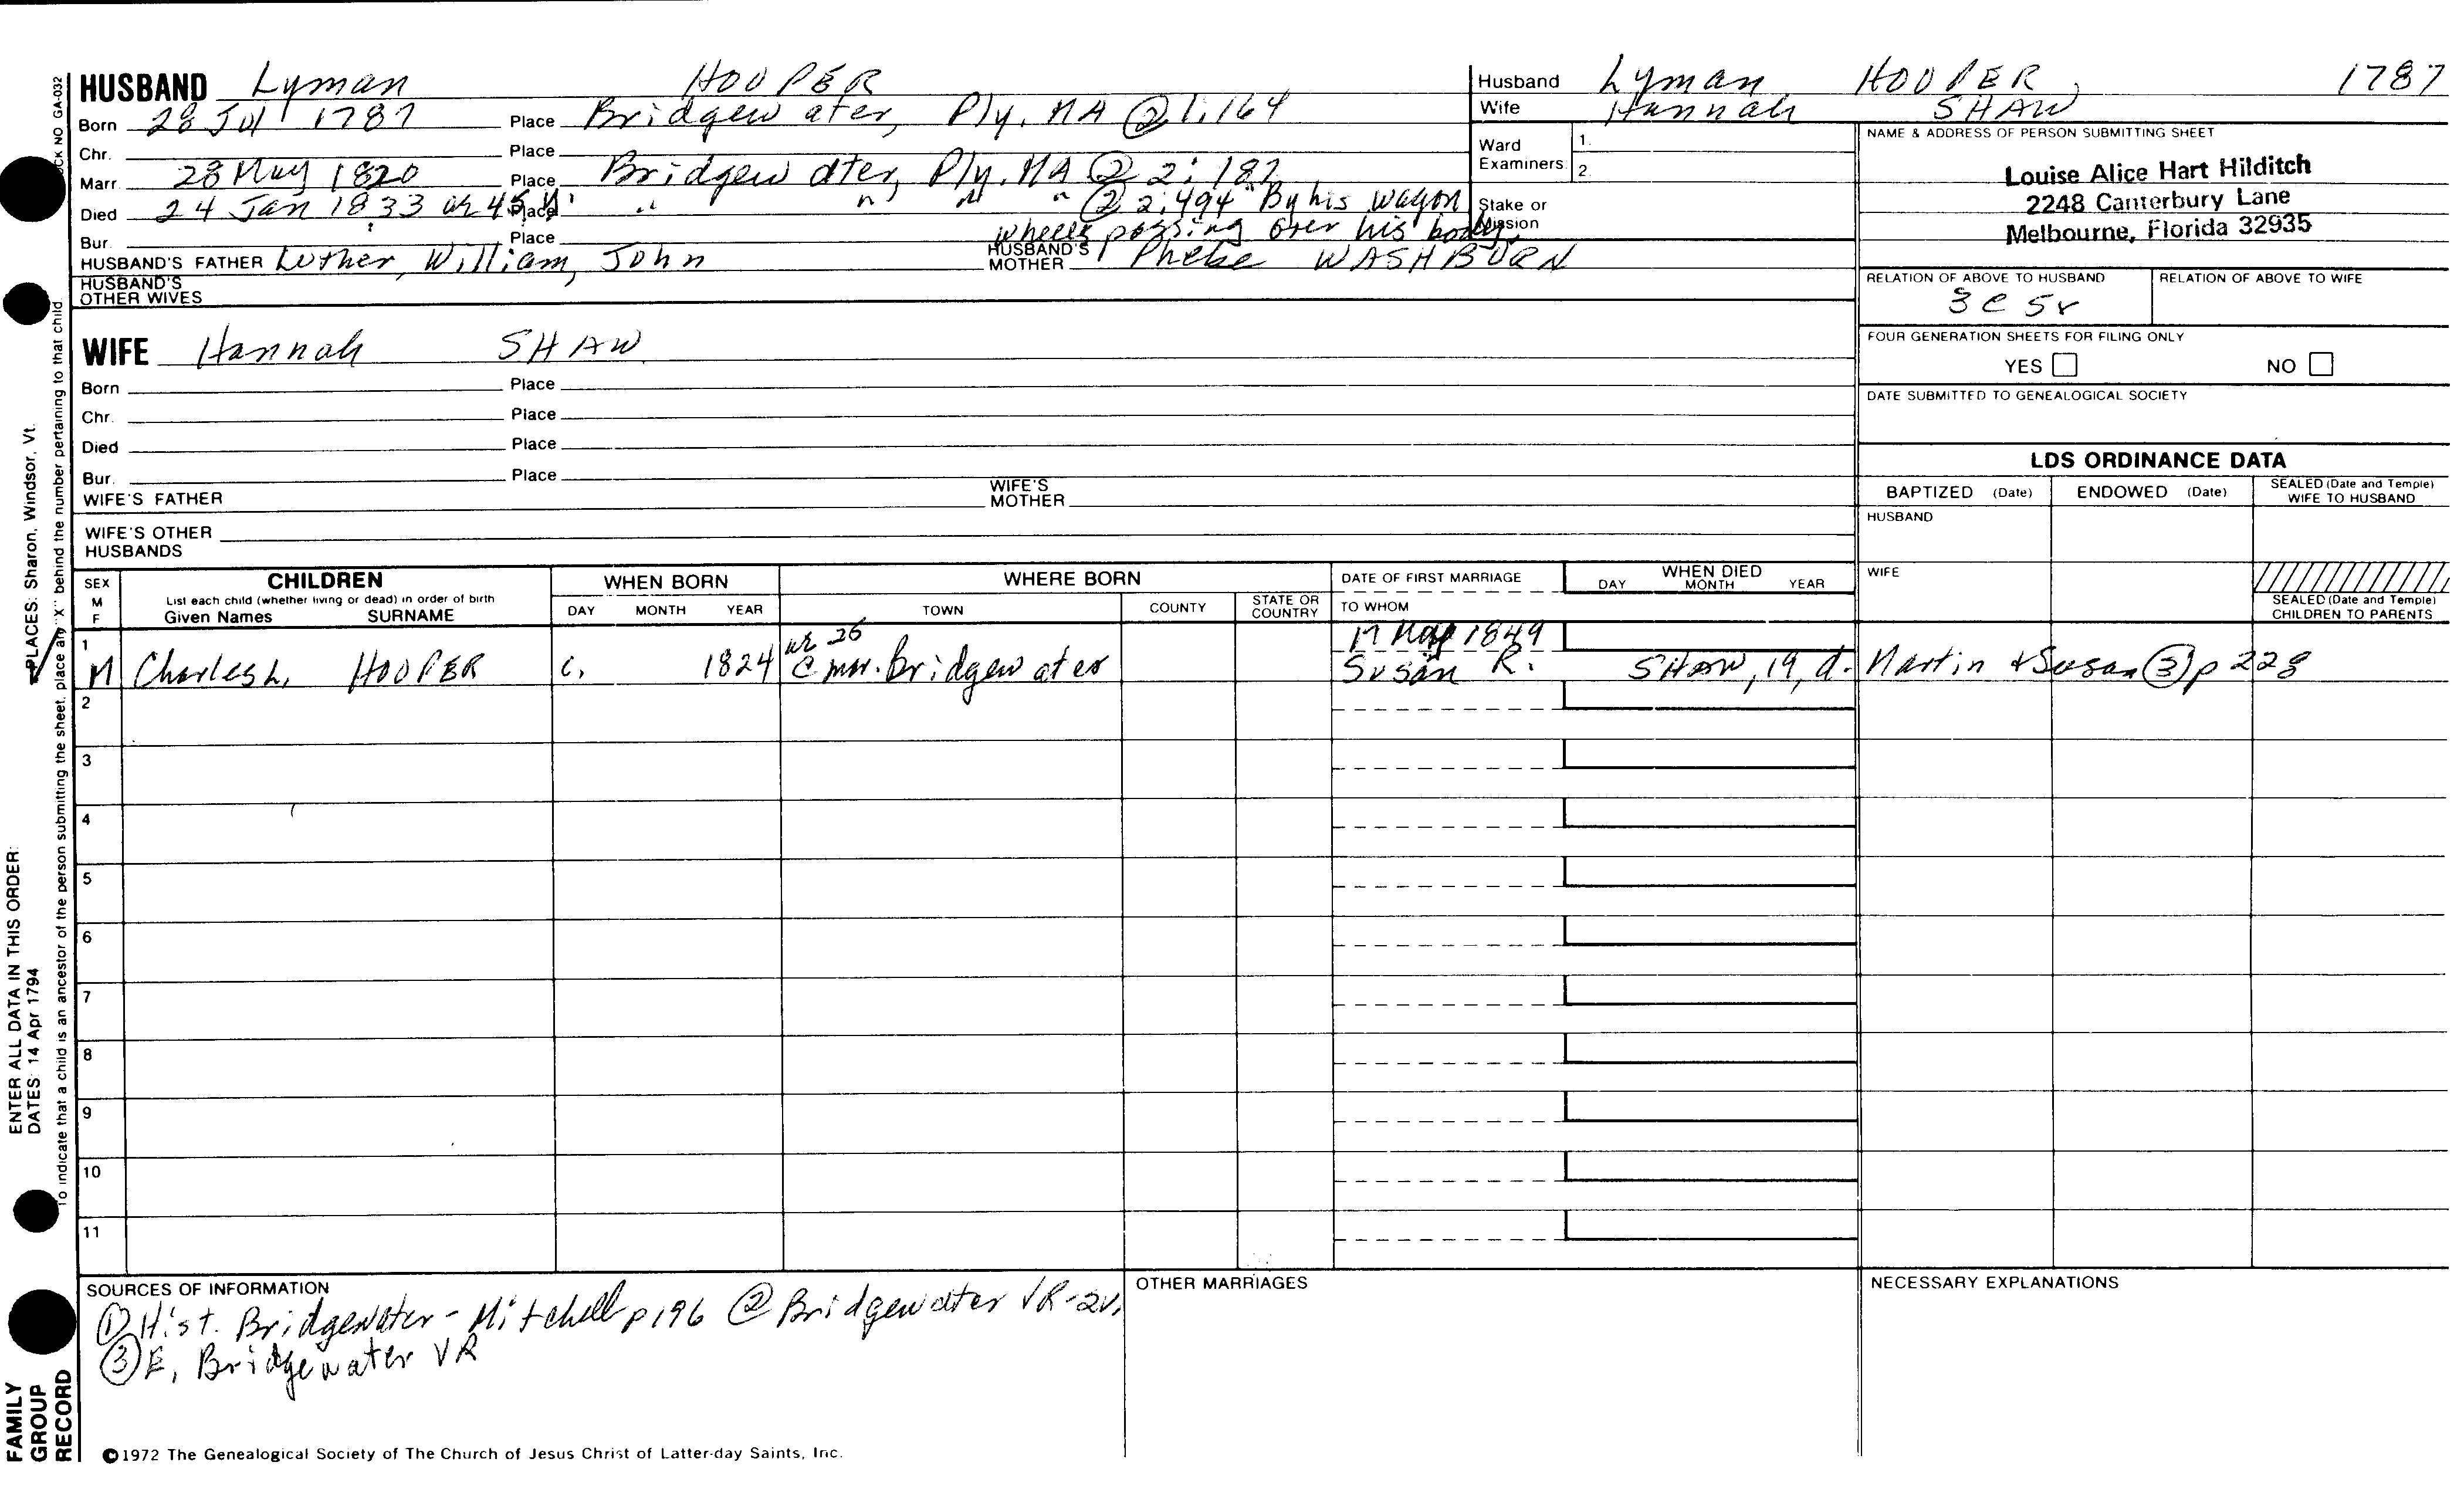 HUSBAND Lyman HOOPER
Born 28 Jul 1787 Place Bridgewater, Ply. MA ② 1:164
Chr. Place
Marr. 28 May 1820 Place Bridgewater, Ply. MA ② 2:187
Died 24 Jan 1833 ae 45 y. Place " " " " ② 2:494 "By his wagon
wheels passing over his body.
Bur. Place
HUSBAND'S FATHER Luther, William, John HUSBAND'S MOTHER Phebe WASHBURN
HUSBAND'S OTHER WIVES
WIFE Hannah SHAW
Born Place
Chr. Place
Died Place
Bur. Place
WIFE'S FATHER WIFE'S MOTHER
WIFE'S OTHER HUSBANDS
Husband Lyman HOOPER, 1787
Wife Hannah SHAW
Ward Examiners: 1. 2.
Stake or Mission
NAME & ADDRESS OF PERSON SUBMITTING SHEET
Louise Alice Hart Hilditch
2248 Canterbury Lane
Melbourne, Florida 32935
RELATION OF ABOVE TO HUSBAND RELATION OF ABOVE TO WIFE
3c 5r
FOUR GENERATION SHEETS FOR FILING ONLY
YES NO
DATE SUBMITTED TO GENEALOGICAL SOCIETY
LDS ORDINANCE DATA
BAPTIZED (Date) ENDOWED (Date) SEALED (Date and Temple) WIFE TO HUSBAND
HUSBAND
WIFE
SEALED (Date and Temple) CHILDREN TO PARENTS
SEX M F CHILDREN WHEN BORN WHERE BORN DATE OF FIRST MARRIAGE WHEN DIED
List each child (whether living or dead) in order of birth
Given Names SURNAME DAY MONTH YEAR TOWN COUNTY STATE OR COUNTRY TO WHOM DAY MONTH YEAR
1 ae 26 1849
M Charles L. HOOPER c. 1824 @ mar. Bridgewater Susan R. SHAW, 19, d. Martin & Susan ③ p 228
2
3
4
5
6
7
8
9
10
11
SOURCES OF INFORMATION
① Hist. Bridgewater - Mitchell p 196 ② Bridgewater VR-2v.
③ E. Bridgewater VR
OTHER MARRIAGES
NECESSARY EXPLANATIONS
©1972 The Genealogical Society of The Church of Jesus Christ of Latter-day Saints, Inc.
FAMILY GROUP RECORD
ENTER ALL DATA IN THIS ORDER:
DATES: 14 Apr 1794 PLACES: Sharon, Windsor, Vt.
To indicate that a child is an ancestor of the person submitting the sheet, place an "X" behind the number pertaining to that child.
NO GA-032